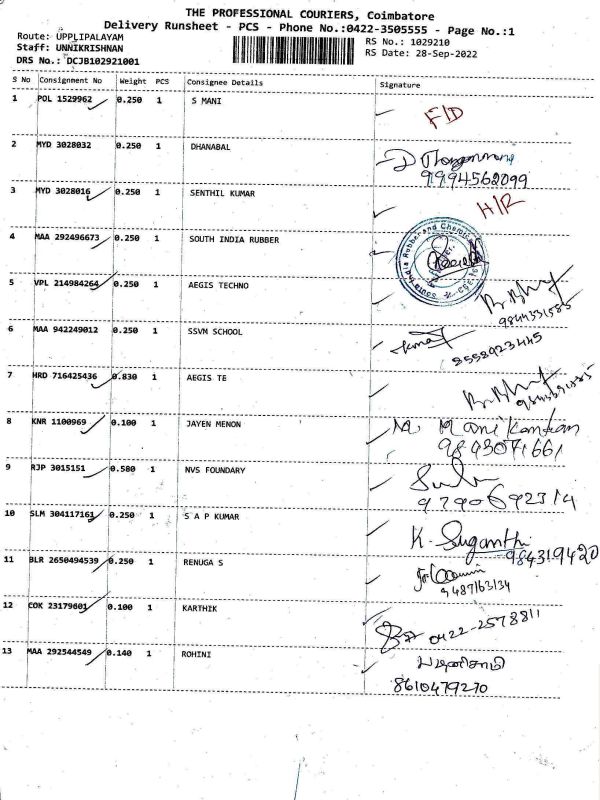 THE PROFESSIONAL COURIERS, Coimbatore
Delivery Runsheet - PCS - Phone No.:0422-3505555 - Page No.:1
Route: UPPLIPALAYAM
Staff: UNNIKRISHNAN
DRS No.: DCJB102921001
RS No.: 1029210
RS Date: 28-Sep-2022
S No Consignment No Weight PCS Consignee Details Signature
1 POL 1529962 0.250 1 S MANI F/D
2 MYD 3028032 0.250 1 DHANABAL
9994562099
3 MYD 3028016 0.250 1 SENTHIL KUMAR H/R
4 MAA 292496673 0.250 1 SOUTH INDIA RUBBER
South India Rubber and Chemic
5 VPL 214984264 0.250 1 AEGIS TECHNO
6 MAA 942249012 0.250 1 SSVM SCHOOL
8558923445
7 HRD 716425436 0.830 1 AEGIS TE
8 KNR 1100969 0.100 1 JAYEN MENON M. Manikandan
9893071661
9 RJP 3015151 0.580 1 NVS FOUNDARY
9790692314
10 SLM 304117161 0.250 1 S A P KUMAR K. Suganthi
984319420
11 BLR 2650494539 0.250 1 RENUGA S
9487163134
12 COK 23179601 0.100 1 KARTHIK
0422-2578811
13 MAA 292544549 0.140 1 ROHINI பழனிசாமி
8610479270